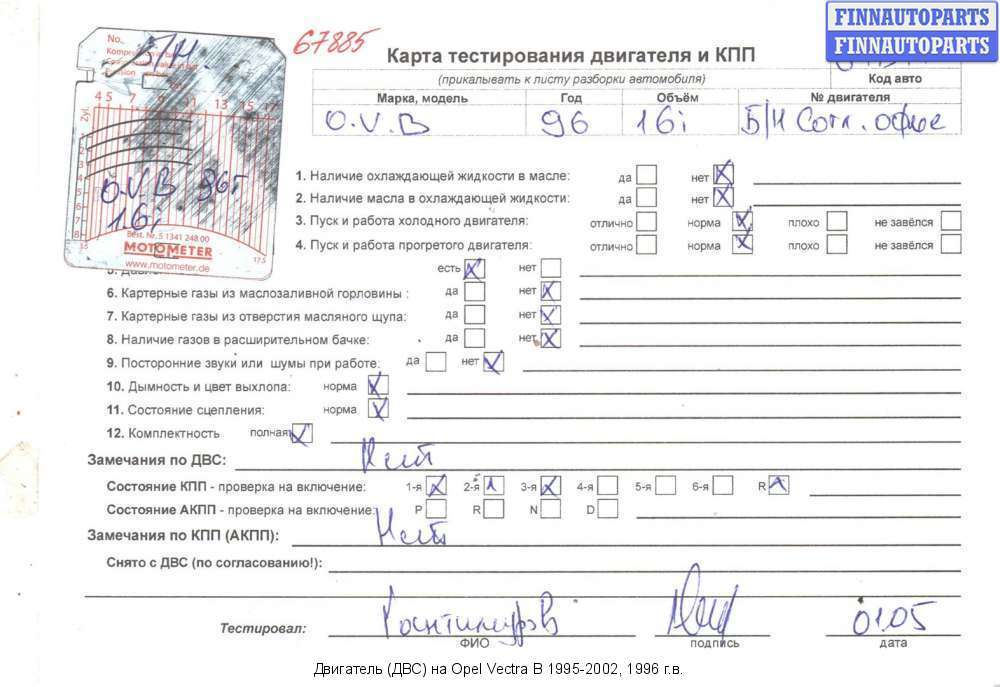 FINNAUTOPARTS
FINNAUTOPARTS
67885
Карта тестирования двигателя и КПП
(прикалывать к листу разборки автомобиля)
Код авто
Марка, модель Год Объём № двигателя
O.V.B 96 16i Б/Н Согл. офис
No.
Б/Н
Zyl.
4 5 7 9 11 13 15 17
O.V.B 96г
1.6i
Best. Nr. 5 1341 248 00
MOTOMETER
www.motometer.de
17.5
1. Наличие охлаждающей жидкости в масле: да нет X
2. Наличие масла в охлаждающей жидкости: да нет X
3. Пуск и работа холодного двигателя: отлично норма X плохо не завёлся
4. Пуск и работа прогретого двигателя: отлично норма X плохо не завёлся
есть X нет
6. Картерные газы из маслозаливной горловины : да нет X
7. Картерные газы из отверстия масляного щупа: да нет X
8. Наличие газов в расширительном бачке: да нет X
9. Посторонние звуки или шумы при работе: да нет X
10. Дымность и цвет выхлопа: норма X
11. Состояние сцепления: норма X
12. Комплектность полная X
Замечания по ДВС: Нет
Состояние КПП - проверка на включение: 1-я X 2-я 3-я X 4-я 5-я 6-я R
Состояние АКПП - проверка на включение: P R N D
Замечания по КПП (АКПП): Нет
Снято с ДВС (по согласованию!):
Тестировал: 01.05
ФИО подпись дата
Двигатель (ДВС) на Opel Vectra B 1995-2002, 1996 г.в.